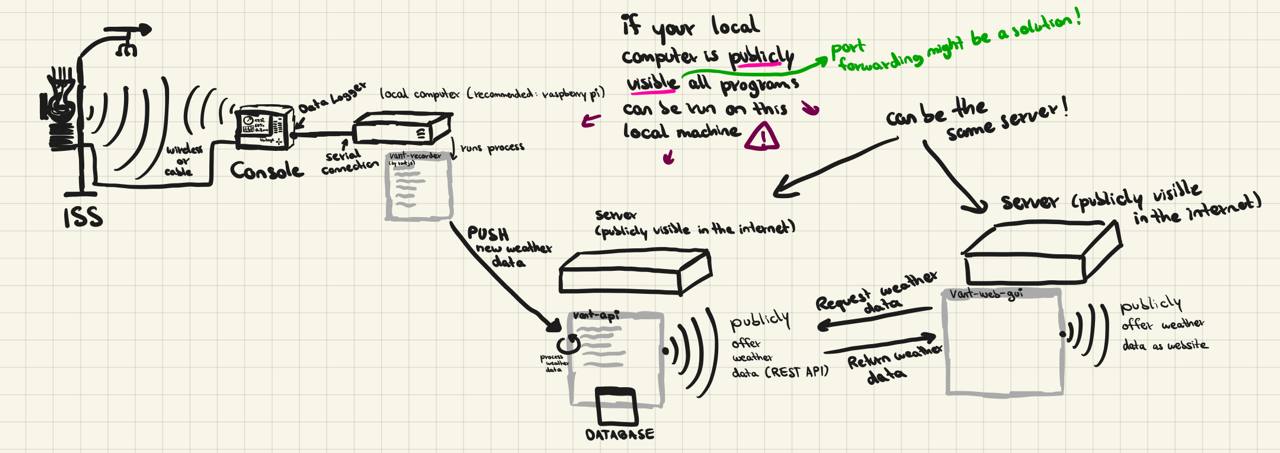 ISS
wireless
or
cable
Console
Data Logger
serial
connection
local computer (recommended: raspberry pi)
runs process
vant-recorder
if your local
computer is publicly
visible all programs
can be run on this
local machine
port
forwarding might be a solution!
can be the
same server!
PUSH
new weather
data
server
(publicly visible in the internet)
vant-api
process
weather
data
DATABASE
publicly
offer
weather
data (REST API)
Request weather
data
Return weather
data
server (publicly visible
in the internet)
vant-web-gui
publicly
offer weather
data as website